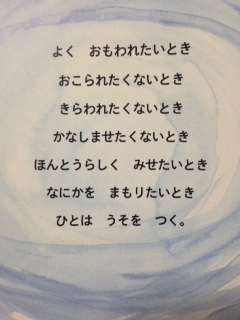 よく　おもわれたいとき
おこられたくないとき
きらわれたくないとき
かなしませたくないとき
ほんとうらしく　みせたいとき
なにかを　まもりたいとき
ひとは　うそを　つく。